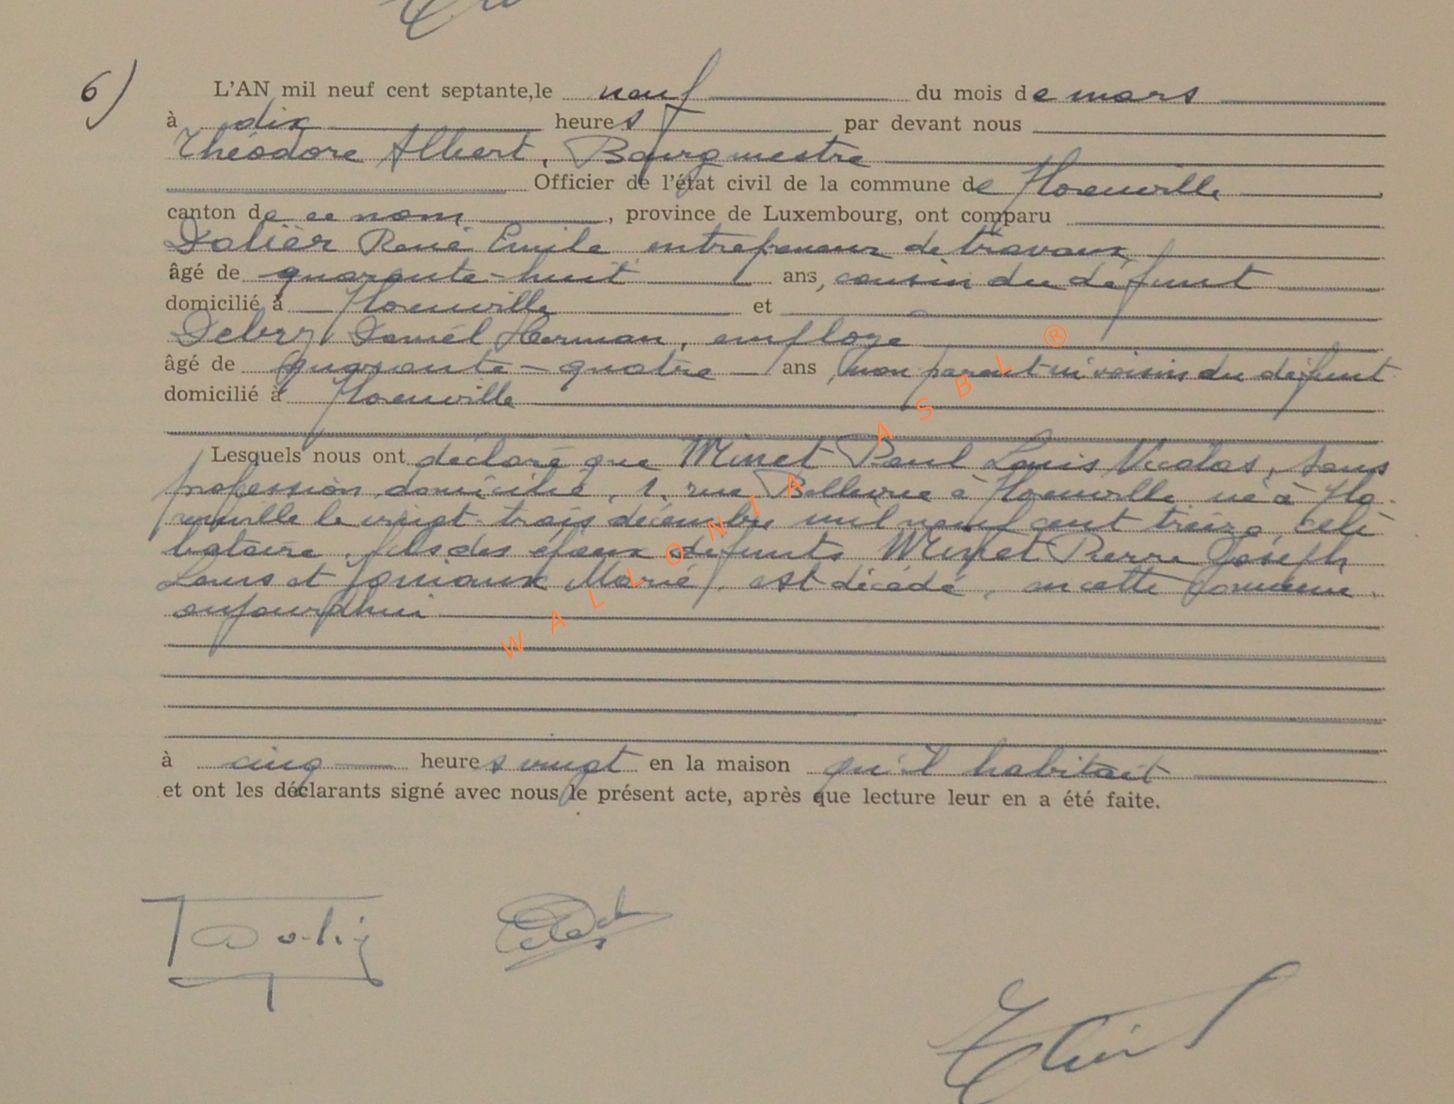 6) L'AN mil neuf cent septante,le neuf du mois de mars
à dix heures par devant nous
Théodore Albert, Bourgmestre
Officier de l'état civil de la commune de Florenville
canton de ce nom, province de Luxembourg, ont comparu
Dolisèr René Emile entrepreneur de travaux,
âgé de quarante-huit ans, cousin du défunt
domicilié à Florenville et
Debry Daniél Herman, employé
âgé de quarante-quatre ans, non parent ni voisin du défunt
domicilié à Florenville
Lesquels nous ont déclaré que Minet Paul Louis Nicolas, sans
profession, domicilié, 1. rue Bellevue à Florenville né à Flo-
renville le vingt-trois décembre mil neuf cent treize céli-
bataire, fils des époux défunts Minet Pierre Joseph
Louis et Goniaux Marie, est décédé, en cette commune,
aujourd'hui
à cinq heures vingt en la maison qu'il habitait
et ont les déclarants signé avec nous le présent acte, après que lecture leur en a été faite.
WALLONIA ASBL ®